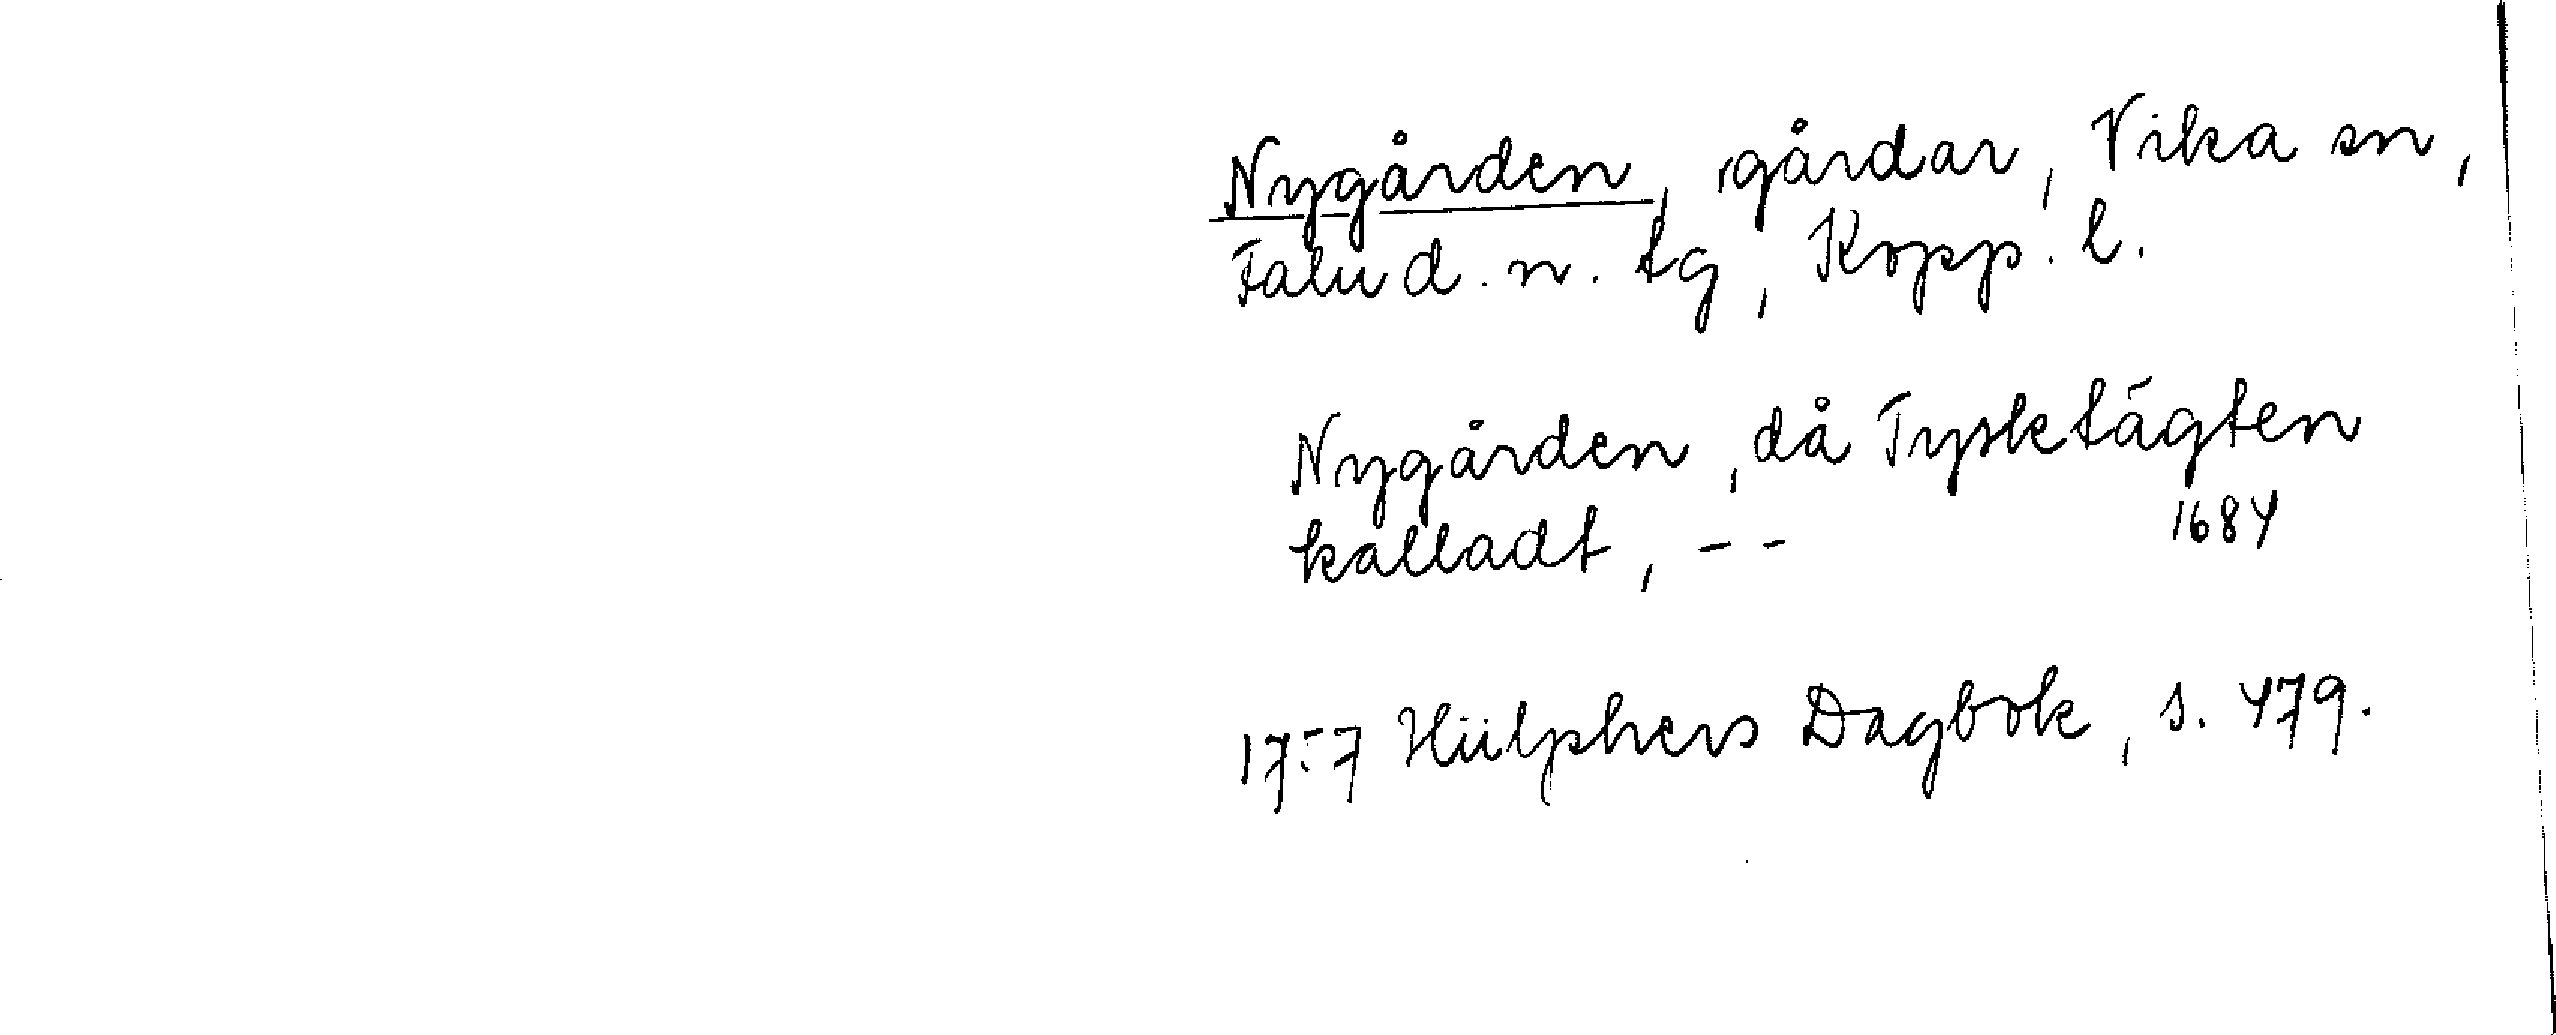 Nygården, gårdar, Vika sn,
Falu d. n. tg, Kopp. l.
Nygården, då Tysktägten
kalladt, -- 1684
1757 Hülphers Dagbok, s. 479.